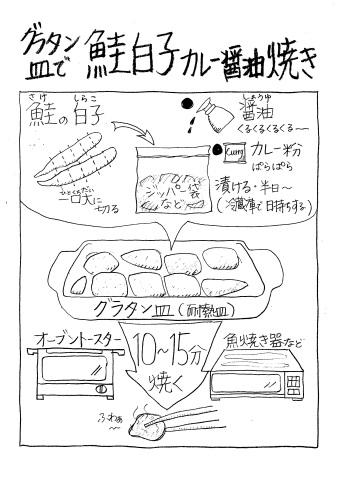 グラタン皿で 鮭白子 カレー醤油焼き
さけ しらこ
鮭の白子
ひとくちだい
一口大に
切る
しょうゆ
醤油
くるくるくるく〜
Curry
カレー粉
ぱらぱら
ジッパー袋
など
漬ける・半日〜
(冷蔵庫で日持ちする)
グラタン皿(耐熱皿)
オーブントースター
10〜15分
焼く
魚焼き器など
ふわぁ〜